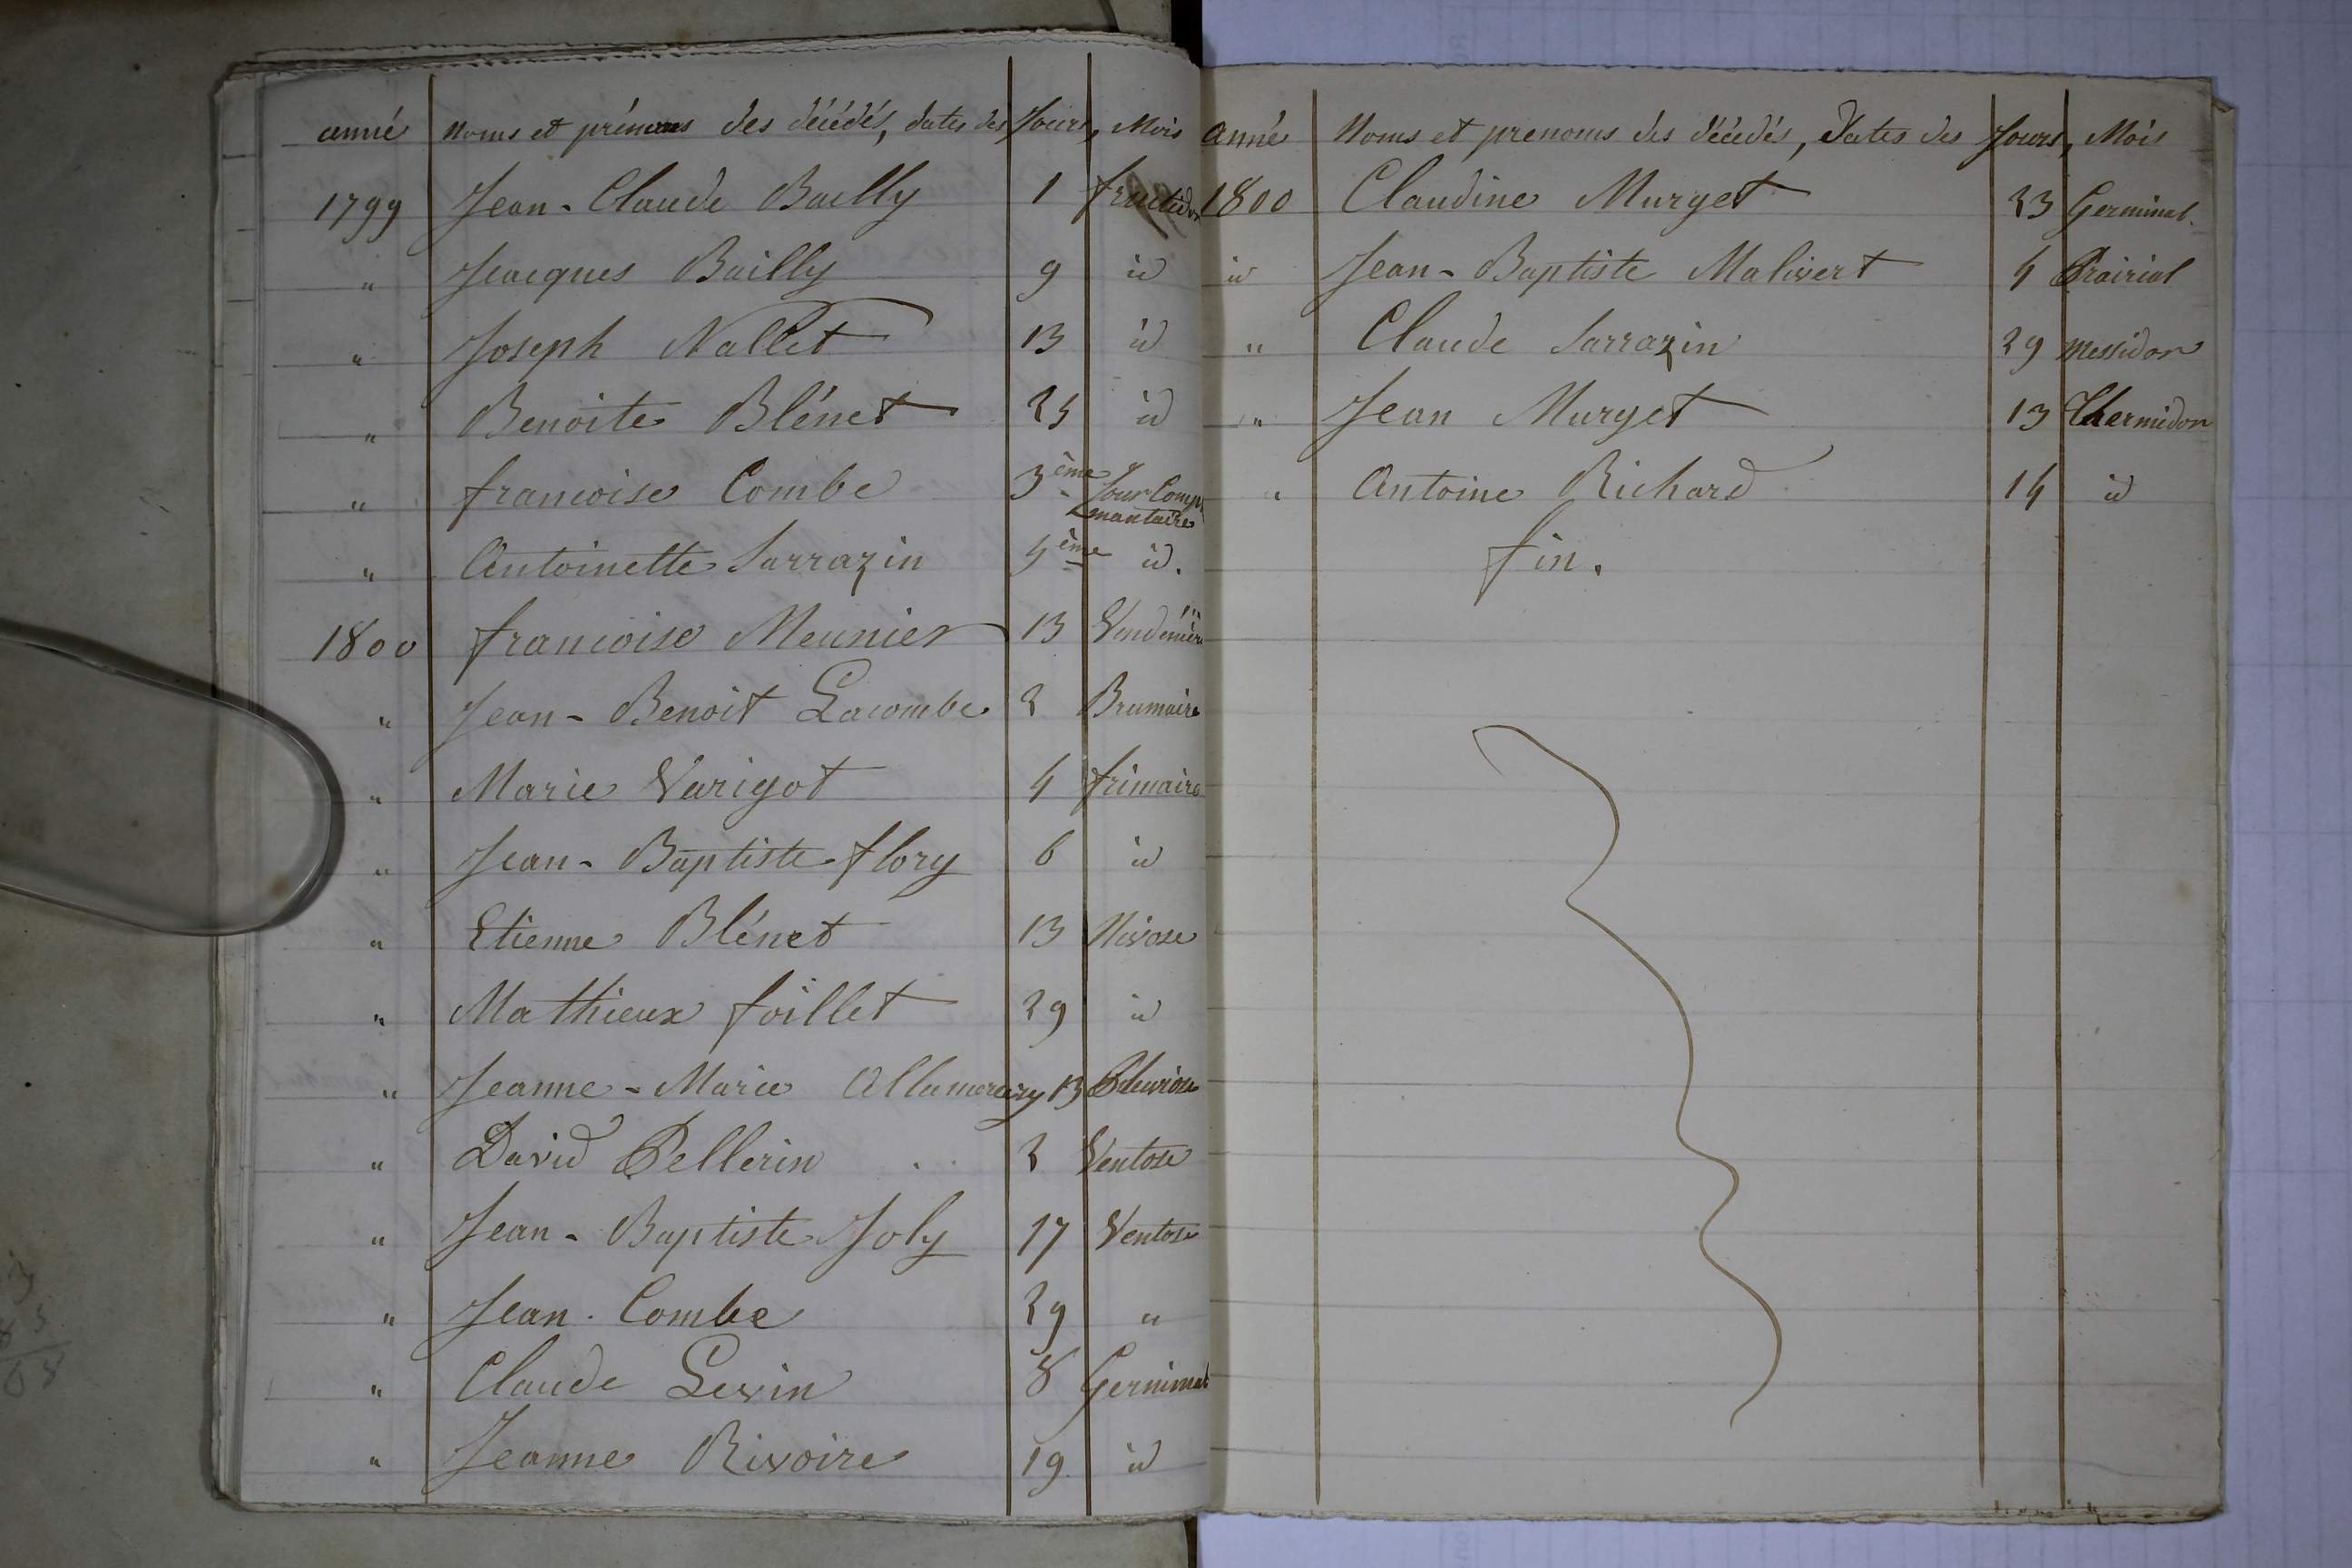 année noms et prénoms des décédés, dates des Jours, Mois
1799 Jean-Claude Bailly 1 fructidor
" Jacques Bailly 9 id
" Joseph Nallet 13 id
" Benoite Blénet 25 id
" francoise Combe 3ème Jour Complmantaire
" Antoinette Sarrazin 5ème id.
1800 francoise Meunier 13 Vendémière
" Jean-Benoit Lacombe 2 Brumaire
" Marie Varigot 4 frimaire
" Jean-Baptiste flory 6 id
" Etienne Blénet 13 Nivose
" Mathieux foillet 29 id
" Jeanne-Marie Allamercery 13 Pluviose
" David Pellerin 2 Ventose
" Jean-Baptiste Joly 17 Ventose
" Jean Combe 29 "
" Claude Levin 8 Germinal
" Jeanne Rivoire 19 id
année Noms et prenoms des décédés, dates des Jours, Mois
1800 Claudine Murget 23 Germinal
id Jean-Baptiste Malivert 4 Prairial
" Claude Sarrazin 29 messidor
" Jean Murget 13 Thermidor
" Antoine Richard 14 id
fin.